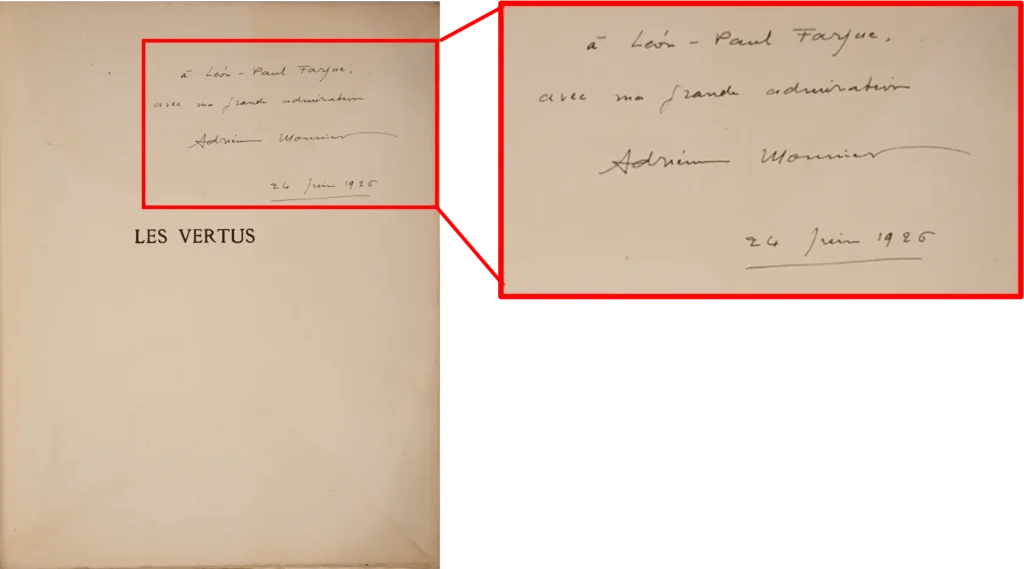 à Léon-Paul Fargue,
avec ma grande admiration
Adrienne Monnier
24 Juin 1926
LES VERTUS
à Léon-Paul Fargue,
avec ma grande admiration
Adrienne Monnier
24 Juin 1926